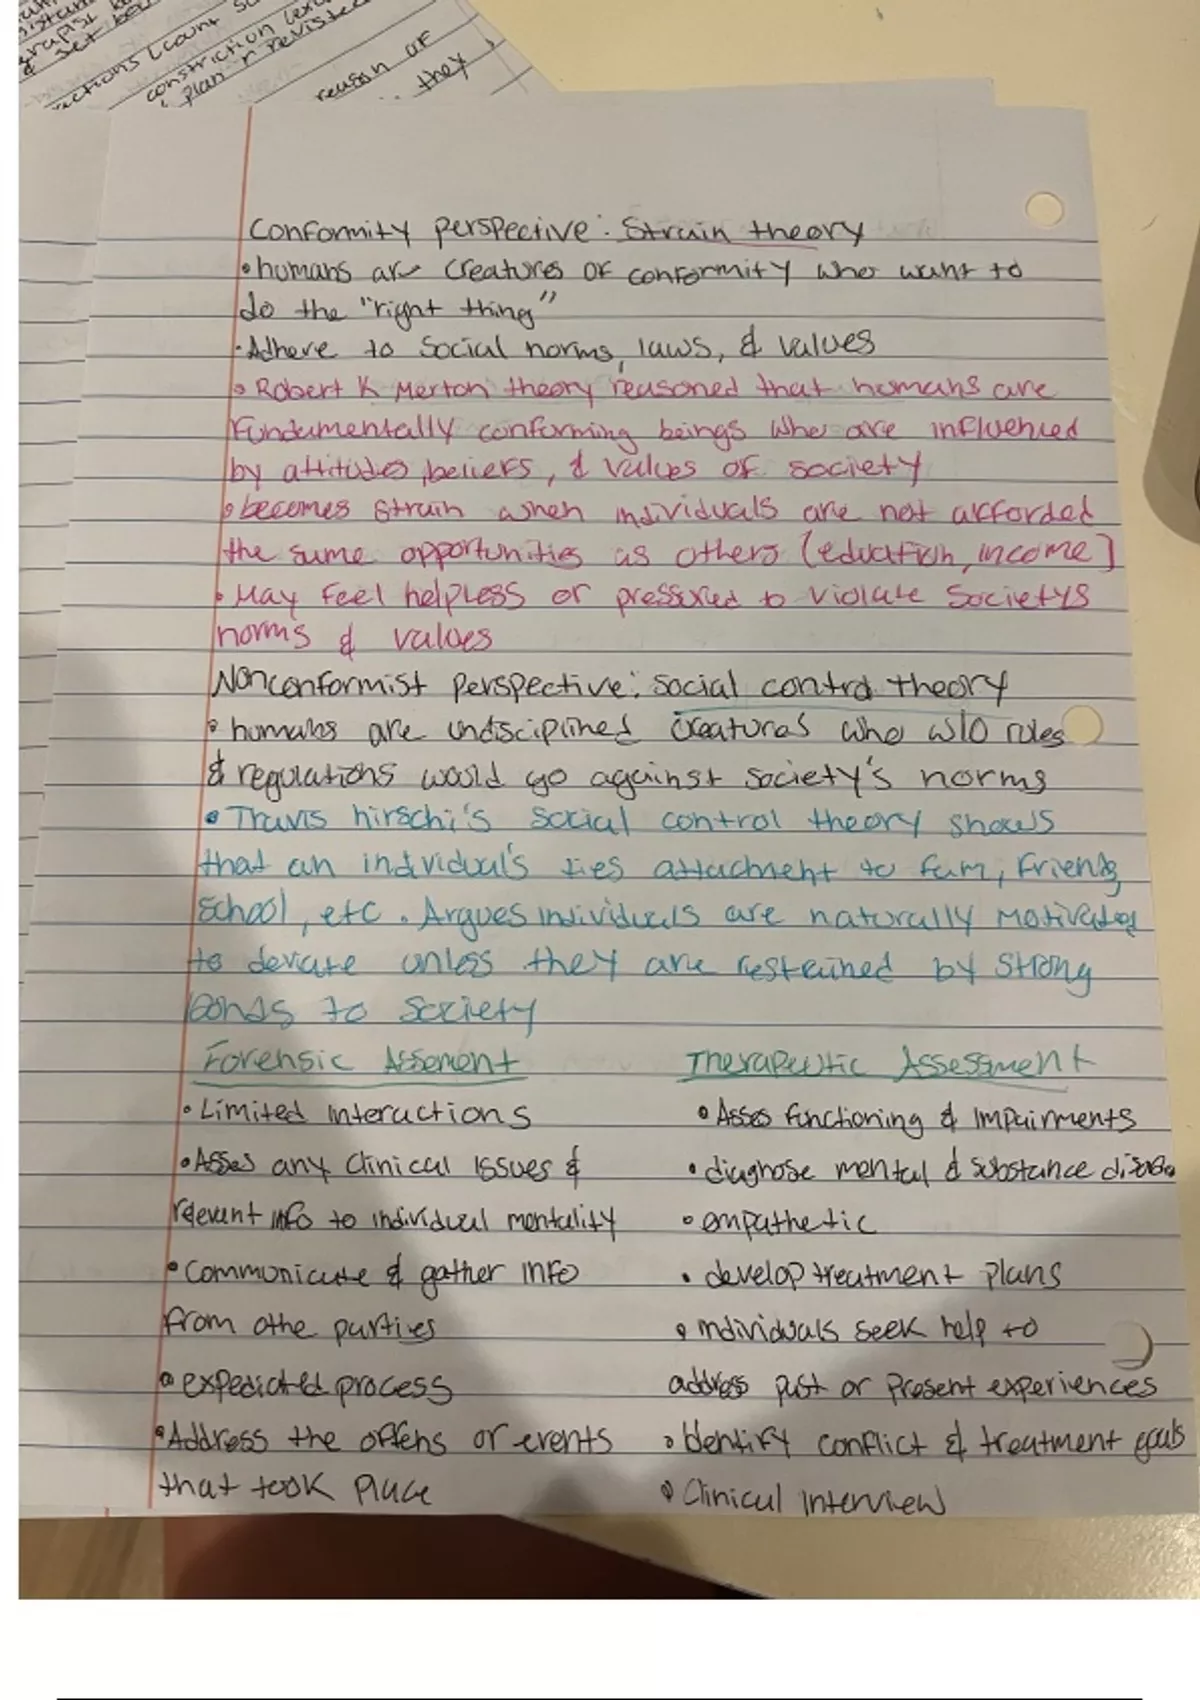 rapist
& set
actions (count
constriction
plan r reviste
reason of
they
Conformity perspective: Strain theory
• humans are creatures of conformity who want to
do the "right thing"
• Adhere to social norms, laws, & values
• Robert K Merton theory reasoned that humans are
Fundamentally conforming beings who are influenced
by attitudes, beliefs, & values of society
• becomes strain when individuals are not afforded
the same opportunities as others (eduation, income)
• May feel helpless or pressured to violate Societys
norms & values
Nonconformist perspective: social control theory
• humans are undisciplined creatures who w/o rules
& regulations would go against society's norms
• Travis hirschi's social control theory shows
that an individual's ties attachment to fam, friends,
school, etc. Argues individuals are naturally motivated
to deviate unless they are restrained by strong
bonds to society
Forensic Assement
Therapeutic Assessment
• Limited interactions
• Asses any clinical issues &
relevant info to individual mentality
• Communicate & gather info
from othe parties
• expediated process
• Address the offens or events
that took place
• Asses functioning & impairments
• diagnose mental & substance
• empathetic
• develop treatment plans
• individuals seek help to
address past or present experiences
• Identify conflict & treatment goals
• Clinical interview